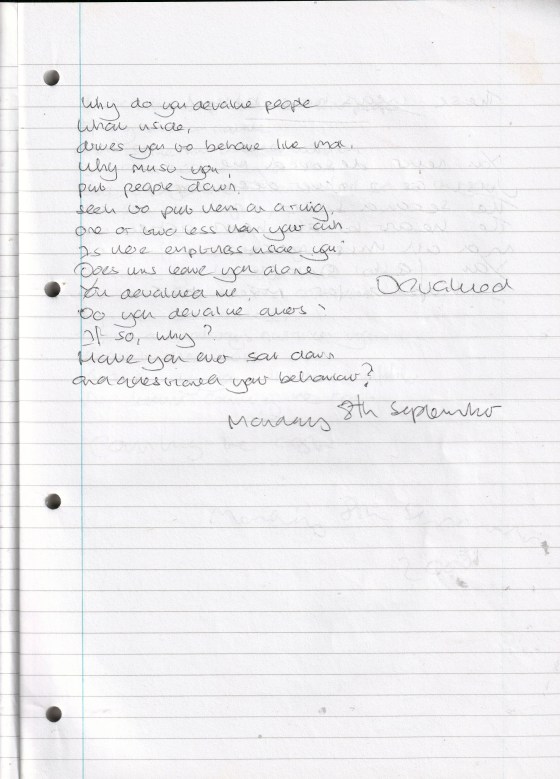 Why do you devalue people
What inside,
drives you to behave like that.
Why must you,
put people down,
seek to put them on a rung,
one or two less than your own
Is there emptyness inside you?
Does this leave you alone
You devalued me.
Devalued
Do you devalue others?
If so, why?
Have you ever sat down
and questioned your behaviour?
Monday 8th September